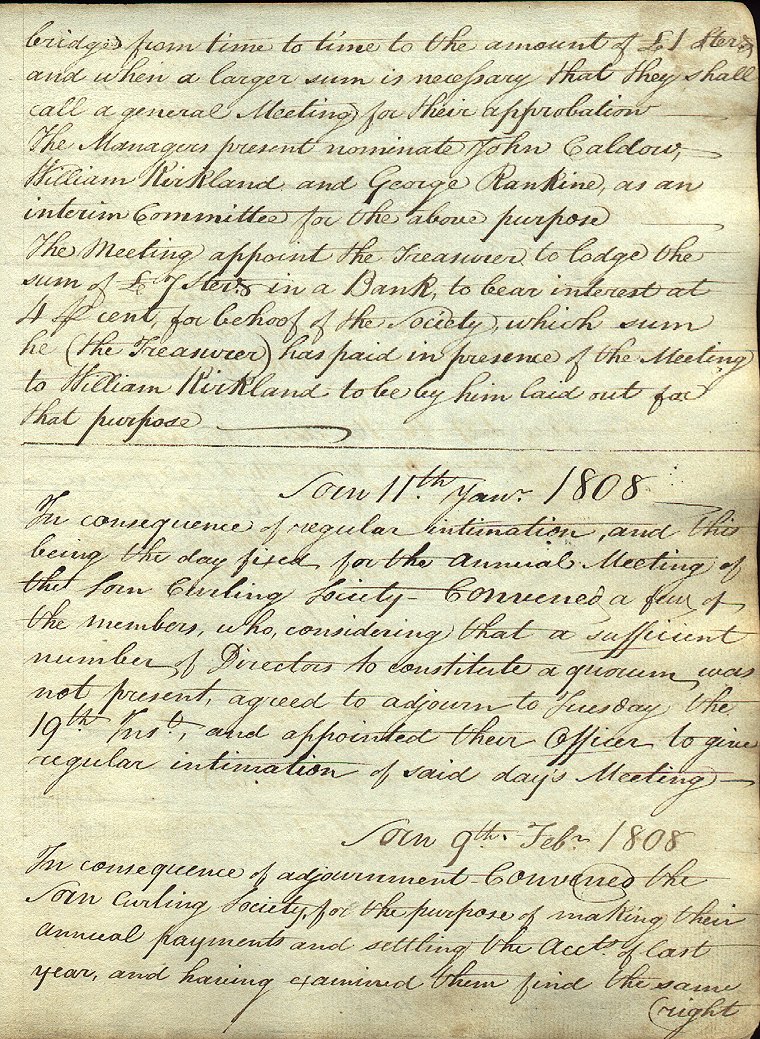 bridge from time to time to the amount of £1 Ster.g
and when a larger sum is necessary that they shall
call a general Meeting for their approbation
The Managers present nominate John Caldow,
William Kirkland and George Rankine, as an
interim Committee for the above purpose
The Meeting appoint the Treasurer to lodge the
sum of £7 Ster.g in a Bank, to bear interest at
4 ₱ cent, for behoof of the Society, which sum
he (the Treasurer) has paid in presence of the Meeting
to William Kirkland to be by him laid out for
that purpose
Sorn 11.th Jan.r 1808
In consequence of regular intimation, and this
being the day fixed for the annual Meeting of
the Sorn Curling Society - Convened a few of
the members, who, considering that a sufficient
number of Directors to constitute a quorum was
not present, agreed to adjourn to Tuesday the
19.th Ins.t, and appointed their Officer to give
regular intimation of said day's Meeting -
Sorn 9.th Feb.r 1808
In consequence of adjournment Convened the
Sorn Curling Society, for the purpose of making their
annual payments and settling the Acct.s of last
year, and having examined them find the same
(right